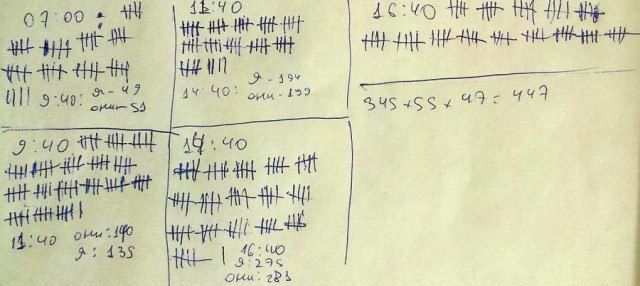 07:00
9:40: я - 49
они - 51
11:40
я - 194
14:40: они - 199
16:40
345 + 55 + 47 = 447
9:40
11:40 они: 140
я: 135
14:40
16:40
я: 275
они: 283